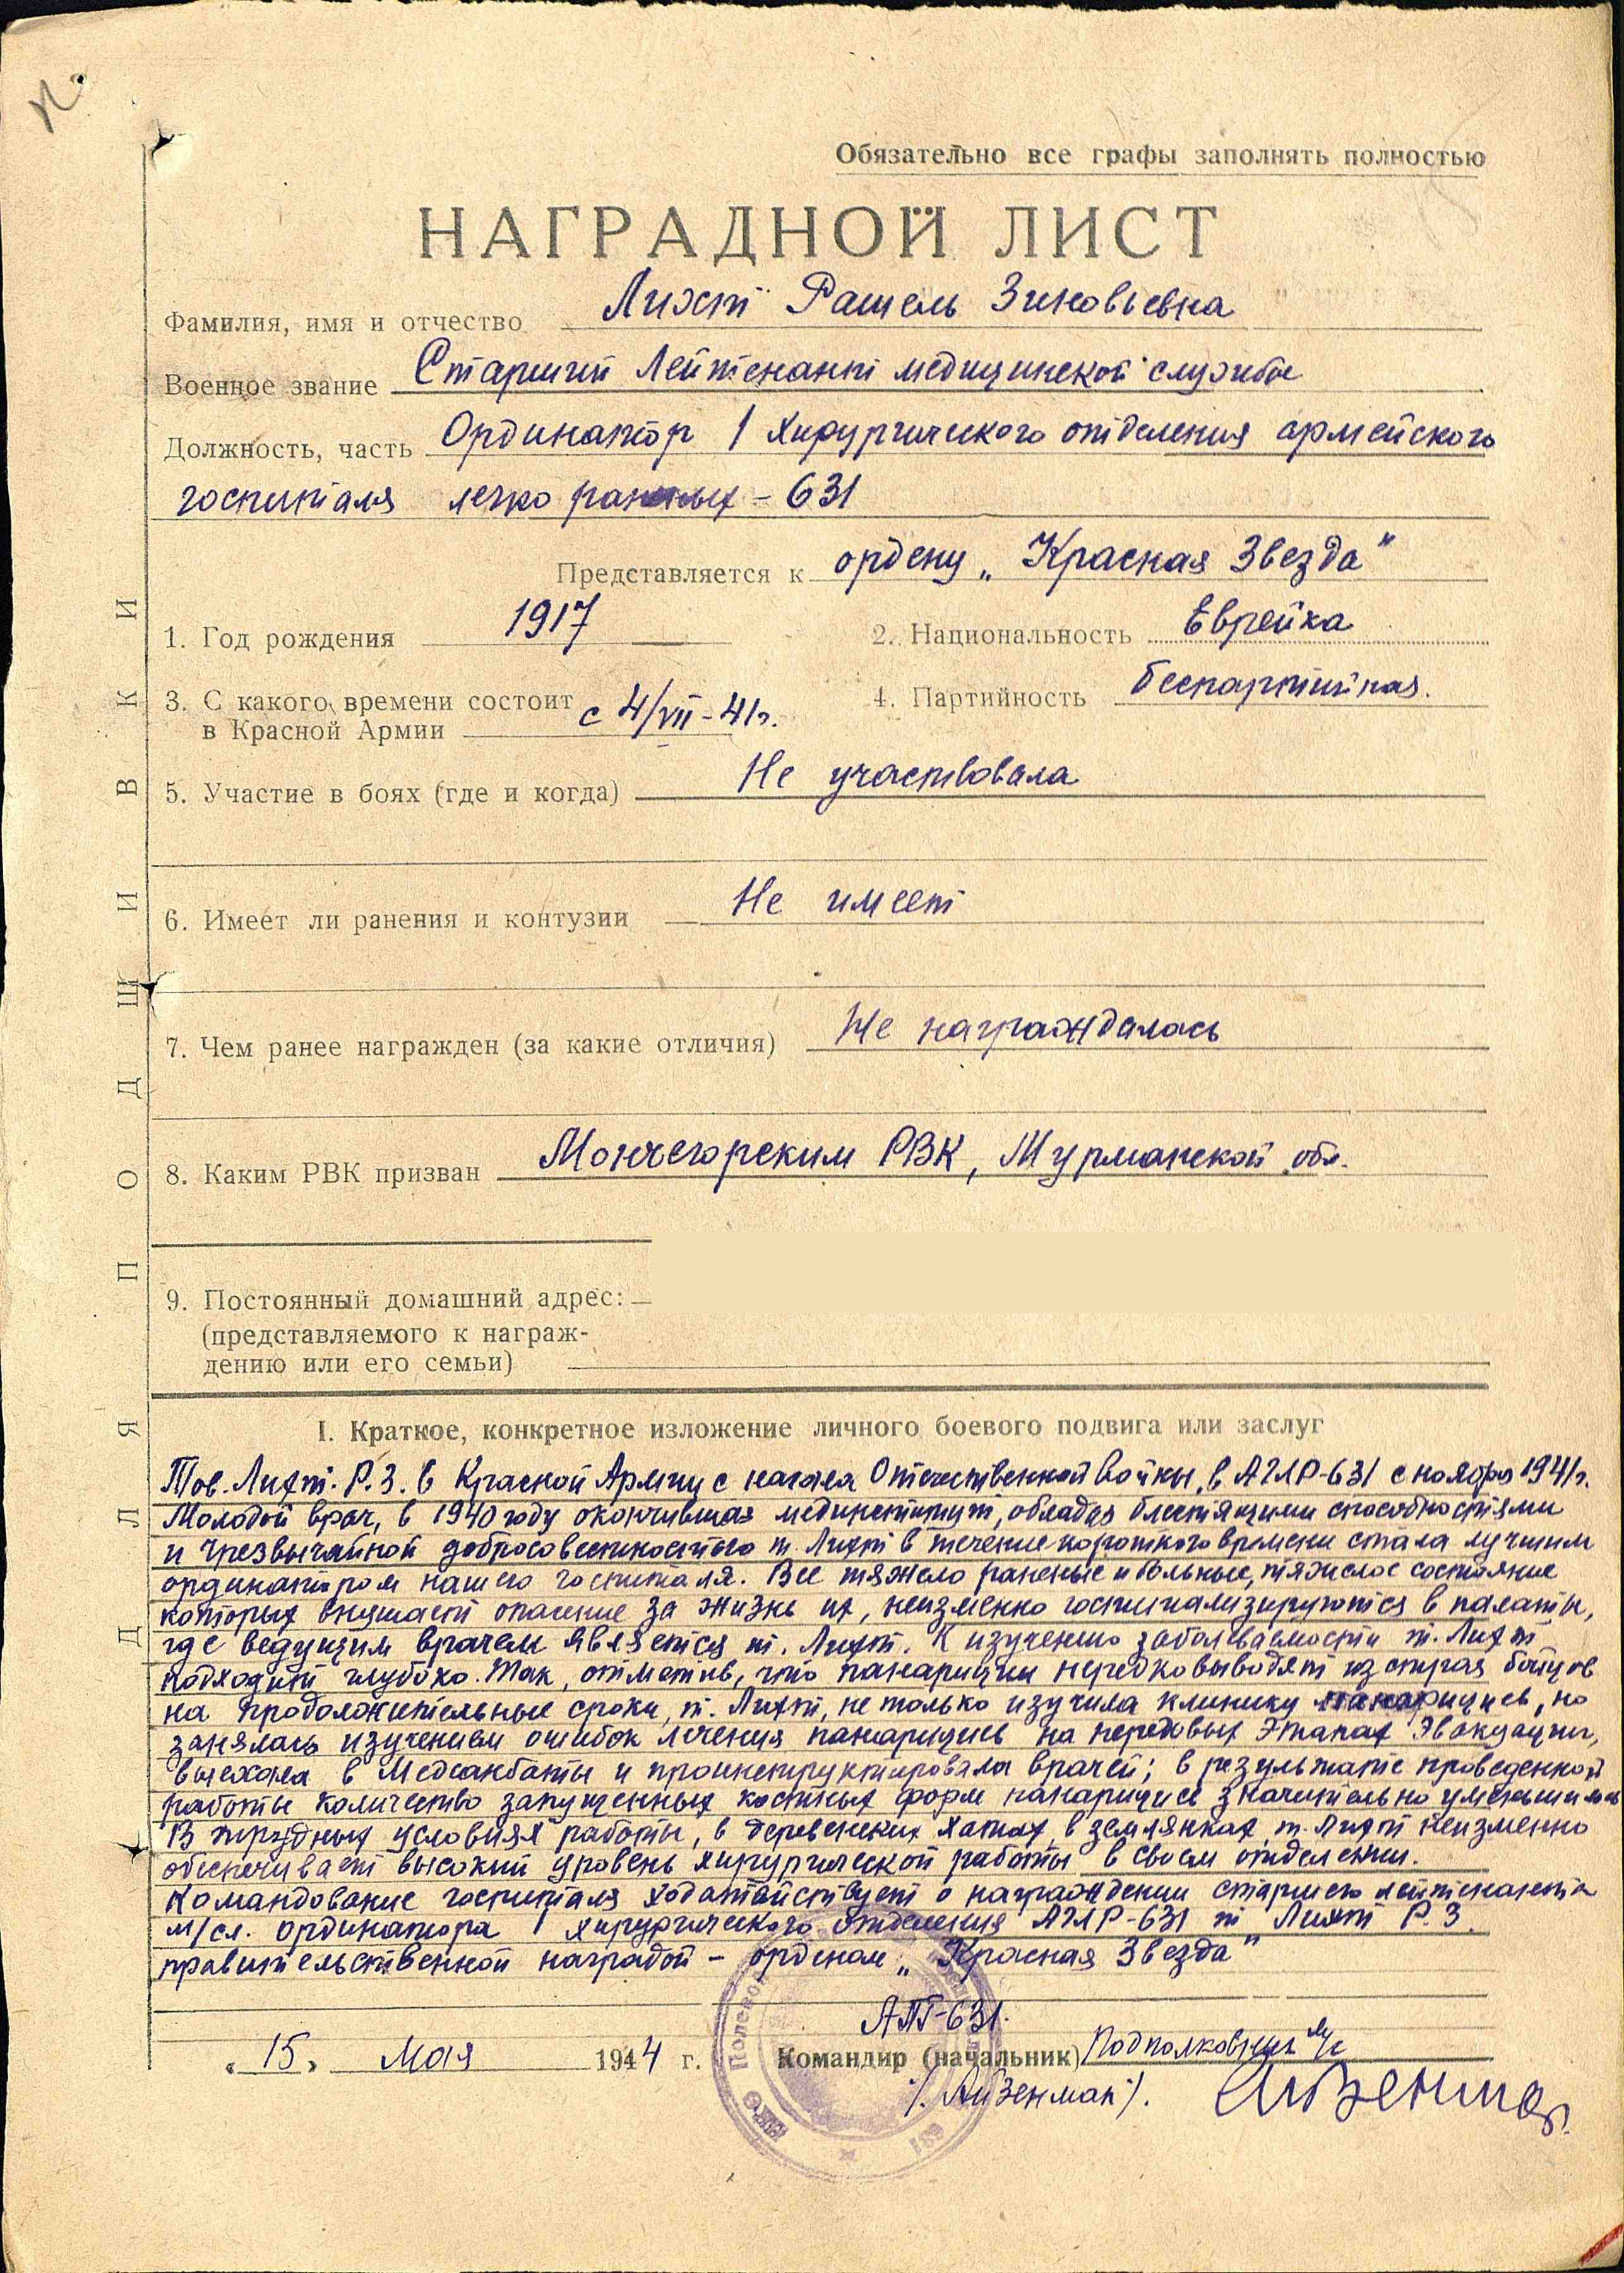 Обязательно все графы заполнять полностью
НАГРАДНОЙ ЛИСТ
Фамилия, имя и отчество Лихт Рашель Зиновьевна
Военное звание Старший Лейтенант медицинской службы
Должность, часть Ординатор 1 хирургического отделения армейского
госпиталя легко раненых - 631
Представляется к ордену „Красная Звезда"
1. Год рождения 1917
2. Национальность Еврейка
3. С какого времени состоит в Красной Армии с 4/VII-41г.
4. Партийность беспартийная.
5. Участие в боях (где и когда) Не участвовала
6. Имеет ли ранения и контузии Не имеет
7. Чем ранее награжден (за какие отличия) Не награждалась
8. Каким РВК призван Мончегорским РВК, Мурманской обл.
9. Постоянный домашний адрес:
(представляемого к награж-
дению или его семьи)
ДЛЯ ПОДШИВКИ
I. Краткое, конкретное изложение личного боевого подвига или заслуг
Тов. Лихт. Р.З. в Красной Армии с начала Отечественной войны, в АГЛР-631 с ноября 1941г.
Молодой врач, в 1940 году окончившая мединститут, обладая блестящими способностями
и чрезвычайной добросовестностью т. Лихт в течение короткого времени стала лучшим
ординатором нашего госпиталя. Все тяжело раненые и больные, тяжелое состояние
которых внушает опасение за жизнь их, неизменно госпитализируются в палаты,
где ведущим врачем является т. Лихт. К изучению заболеваемости т. Лихт
подходит глубоко. Так, отметив, что панариции нередко выводят из строя бойцов
на продолжительные сроки, т. Лихт, не только изучила клинику панарициев, но
занялась изучением ошибок лечения панарициев на передовых этапах эвакуации,
выезжала в Медсанбаты и проинструктировала врачей; в результате проведенной
работы количество запущенных костных форм панарициев значительно уменьшилось
В трудных условиях работы, в деревенских хатах, в землянках, т. Лихт неизменно
обеспечивает высокий уровень хирургической работы в своем отделении.
Командование госпиталя ходатайствует о награждении старшего лейтенанта
м/сл. ординатора 1 хирургического отделения АГЛР-631 т Лихт Р.З.
правительственной наградой - орденом „Красная Звезда"
АПГ-631.
„15„ Мая 1944 г. Командир (начальник) Подполковник м/с
/. Айзенман /. Айзенман
Полево
631